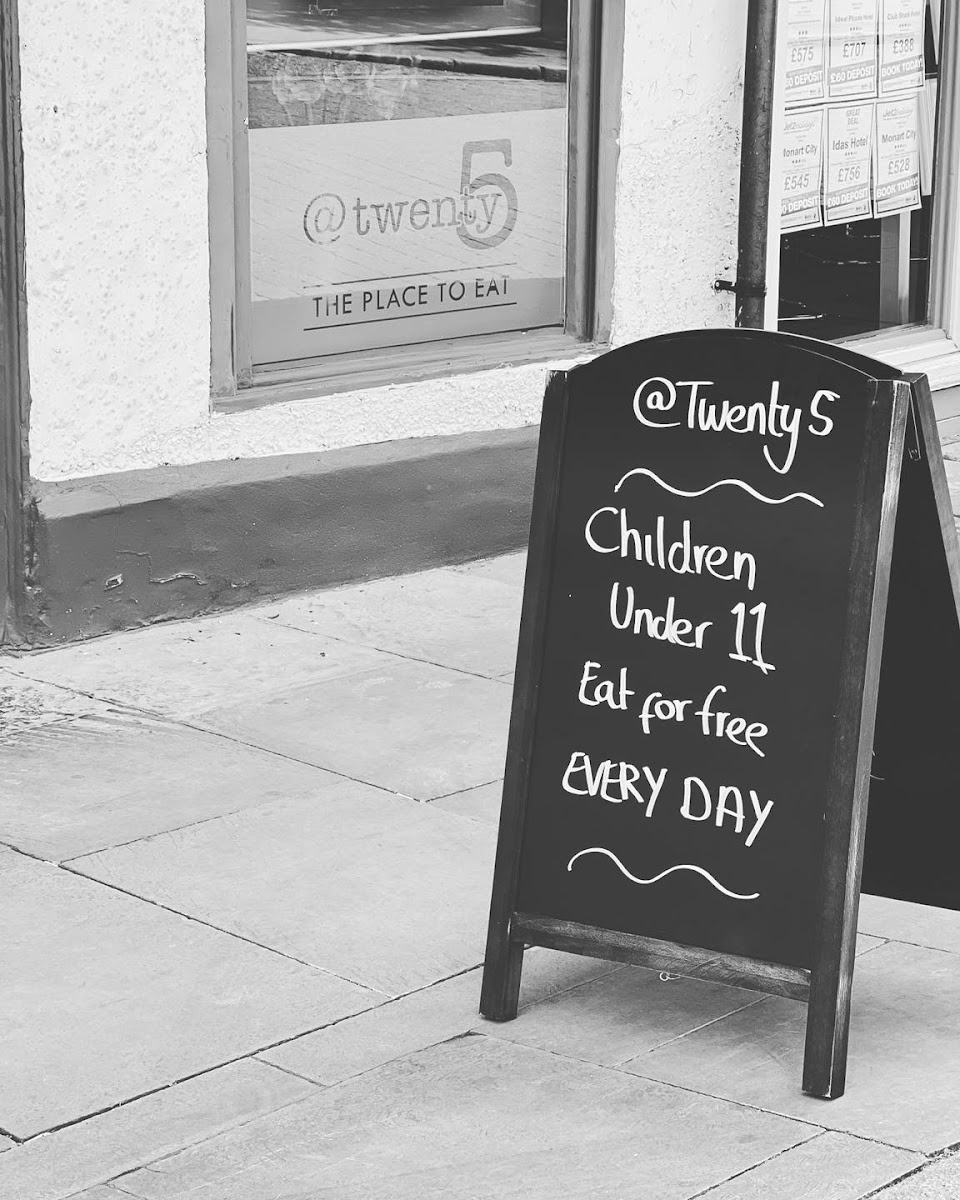 @twenty5
THE PLACE TO EAT
Ideal Prime Hotel
Club Shark Hotel
£575
£707
£388
£60 DEPOSIT
BOOK TODAY
GREAT
DEAL
Monart City
Idas Hotel
Monart City
£545
£756
£528
DEPOSIT
£60 DEPOSIT
BOOK TODAY
@Twenty5
Children
Under 11
Eat for free
EVERY DAY